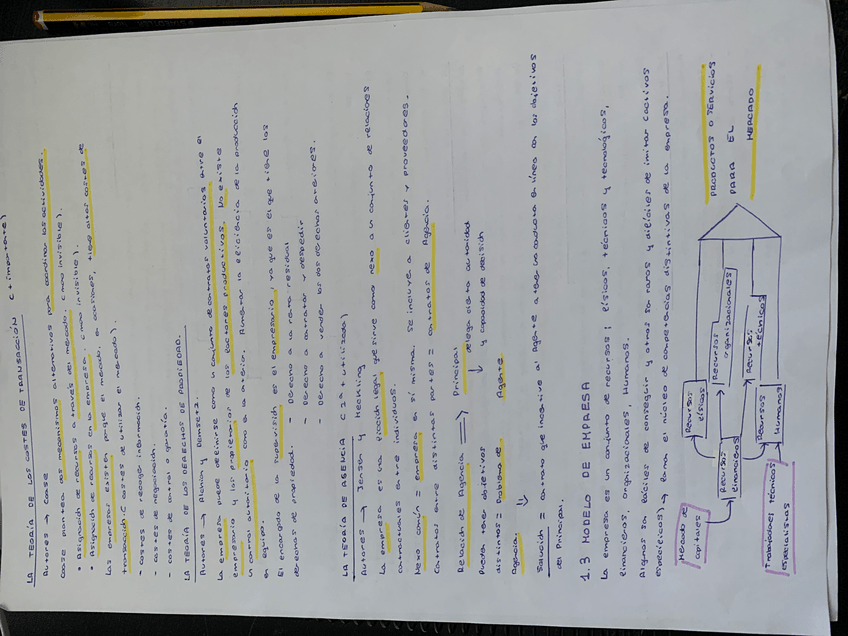 LA TEORÍA DE LOS COSTES DE TRANSACCIÓN (+ importante)
Autores → Coase
Coase plantea dos mecanismos alternativos para coordinar las actividades.
• Asignación de recursos a través del mercado. (mano invisible).
• Asignación de recursos en la empresa. (mano visible).
Las empresas existen porque el mercado, en ocasiones, tiene altos costes de
transacción (costes de utilizar el mercado).
- costes de recoger información.
- costes de negociación.
- costes de control garantía.
LA TEORÍA DE LOS DERECHOS DE PROPIEDAD.
Autores → Alchian y Demsetz.
La empresa puede definirse como un conjunto de contratos voluntarios entre el
empresario y los propietarios de los factores productivos. No existe
un control autoritario como en la anterior. Aumentar la eficiencia de la producción
en equipo.
El encargado de la supervisión es el empresario, ya que es el que tiene los
derechos de propiedad.
- Derecho a la renta residual
- Derecho a contratar y despedir
- Derecho a vender los dos derechos anteriores.
LA TEORÍA DE AGENCIA (2ª + utilizada)
Autores → Jensen y Meckling
La empresa es una ficción legal que sirve como nexo a un conjunto de relaciones
contractuales entre individuos.
Nexo común = empresa en sí misma. Se incluye a clientes y proveedores.
Contratos entre distintas partes = contratos de Agencia.
Relación de Agencia ⟹ Principal
↓ delega cierta autoridad
y capacidad de decisión
Agente
Pueden tener objetivos
distintos = Problema de
Agencia.
⇓
Solución = contrato que incentive al Agente a tener una conducta en línea con los objetivos
del Principal.
1.3 MODELO DE EMPRESA
La empresa es un conjunto de recursos: físicos, técnicos y tecnológicos,
financieros, organizacionales, Humanos.
Algunos son fáciles de conseguir y otros son raros y difíciles de imitar (activos
específicos) → forman el núcleo de competencias distintivas de la empresa.
Mercado de
capitales
Recursos
financieros
Recursos
físicos
Recursos
organizacionales
Recursos
técnicos
Recursos
Humanos
Trabajadores técnicos
especialistas
PRODUCTOS O SERVICIOS
PARA EL
MERCADO